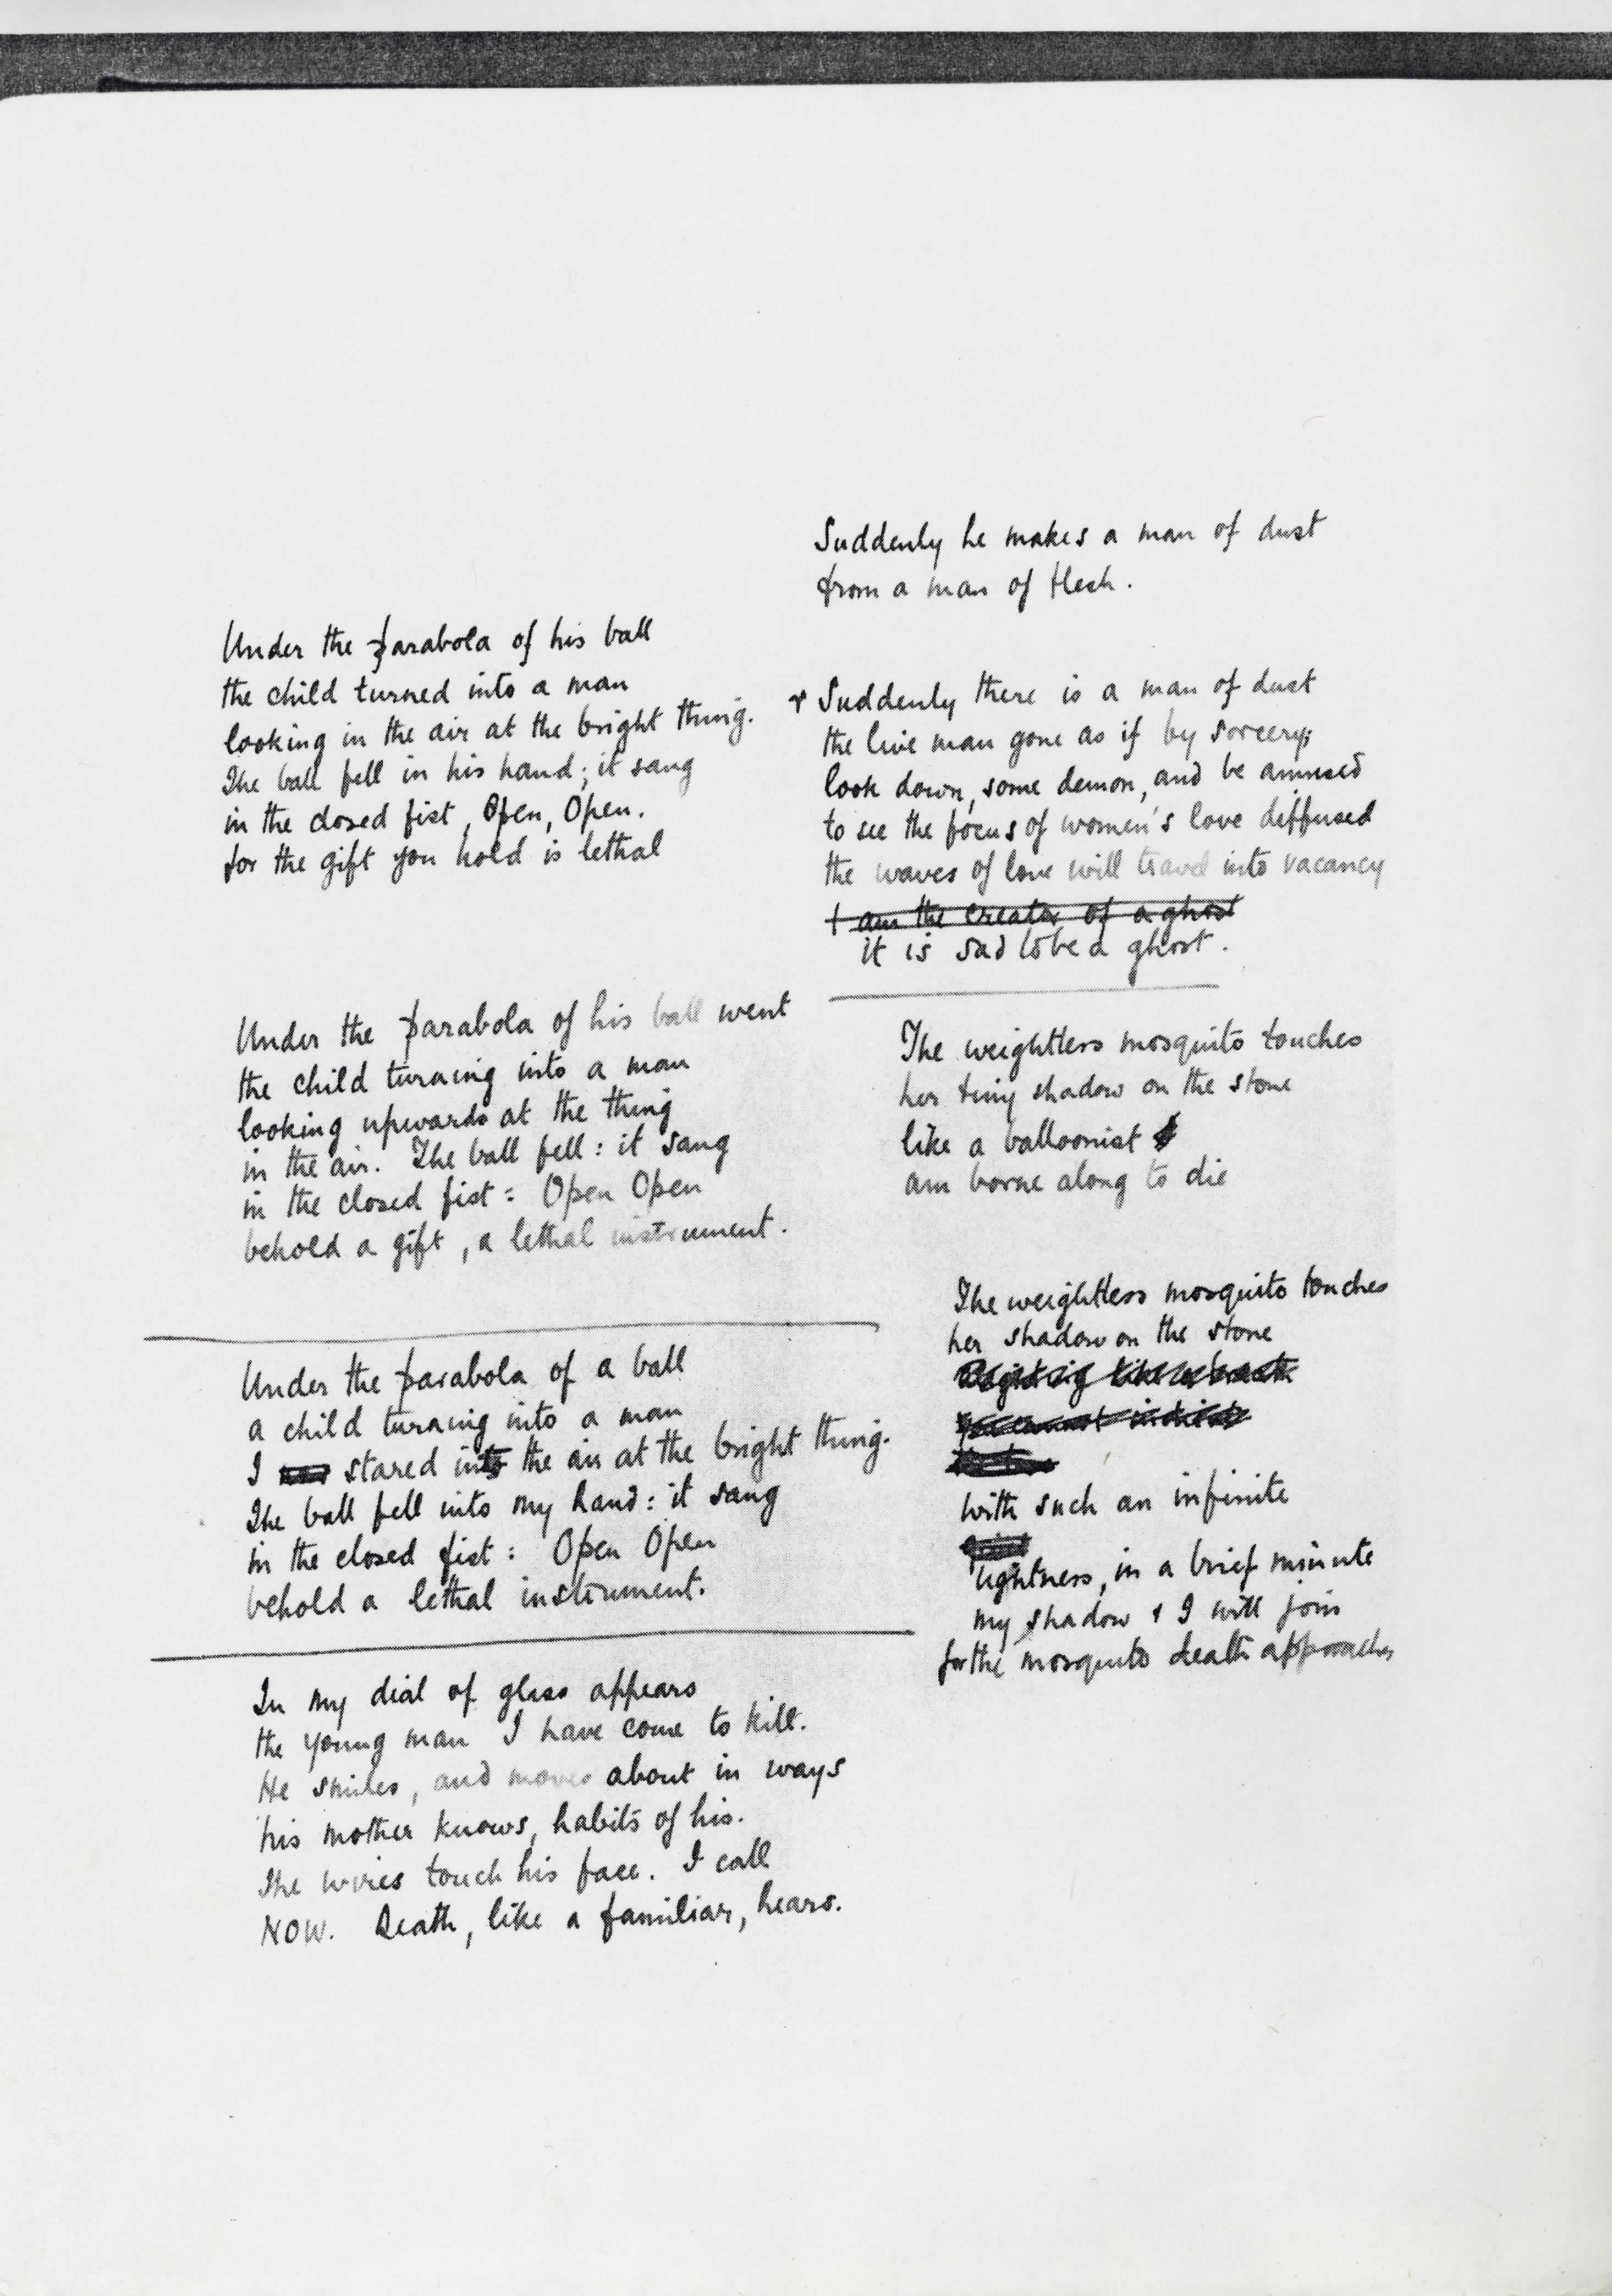 Under the parabola of his ball
the child turned into a man
looking in the air at the bright thing.
The ball fell in his hand; it sang
in the closed fist, Open, Open.
for the gift you hold is lethal
Under the parabola of his ball went
the child turning into a man
looking upwards at the thing
in the air. The ball fell: it sang
in the closed fist: Open Open
behold a gift, a lethal instrument.
Under the parabola of a ball
a child turning into a man
I stared into the air at the bright thing.
The ball fell into my hand: it sang
in the closed fist: Open Open
behold a lethal instrument.
In my dial of glass appears
the young man I have come to kill.
He smiles, and moves about in ways
his mother knows, habits of his.
The wires touch his face. I call
NOW. Death, like a familiar, hears.
Suddenly he makes a man of dust
from a man of flesh.
Suddenly there is a man of dust
the live man gone as if by sorcery;
look down, some demon, and be amused
to see the focus of women's love diffused
the waves of love will travel into vacancy
I am the creator of a ghost
it is sad to be a ghost.
The weightless mosquito touches
her tiny shadow on the stone
like a balloonist
am borne along to die
The weightless mosquito touches
her shadow on the stone
with such an infinite
lightness, in a brief minute
my shadow & I will join
for the mosquito death approaches